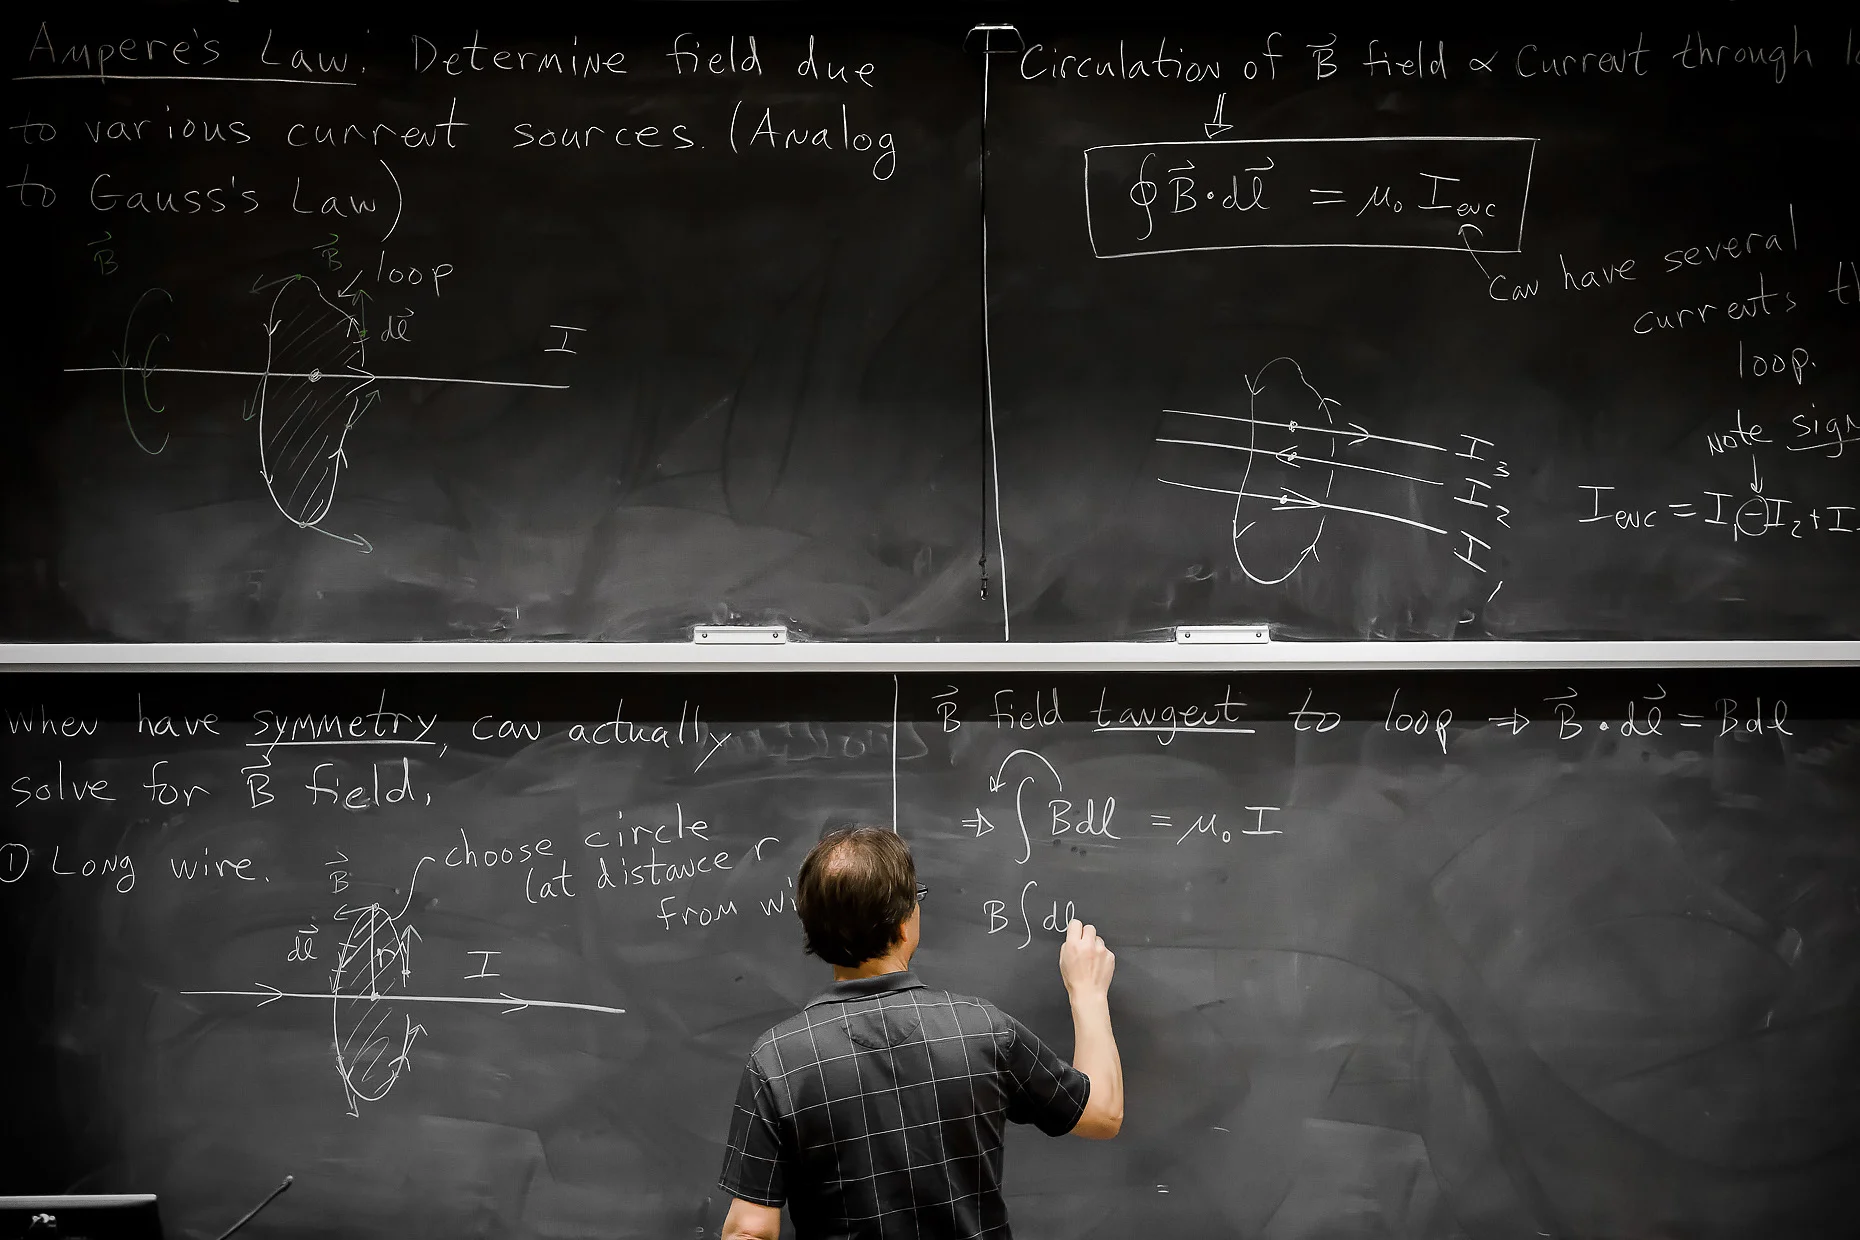 Ampere's Law: Determine field due
to various current sources. (Analog
to Gauss's Law)
B⃗
B⃗
loop
dl⃗
I
Circulation of B⃗ field ∝ Current through
∮ B⃗ · dl⃗ = μ₀ I_enc
Can have several
currents
loop.
Note
I₃
I₂
I₁
I_enc = I₁ - I₂ + I
When have symmetry, can actually
solve for B⃗ field.
① Long wire.
choose circle
(at distance r
from
B⃗
dl⃗
r
I
B⃗ field tangent to loop ⇒ B⃗ · dl⃗ = Bdl
⇒ ∫ Bdl = μ₀ I
B ∫ dl